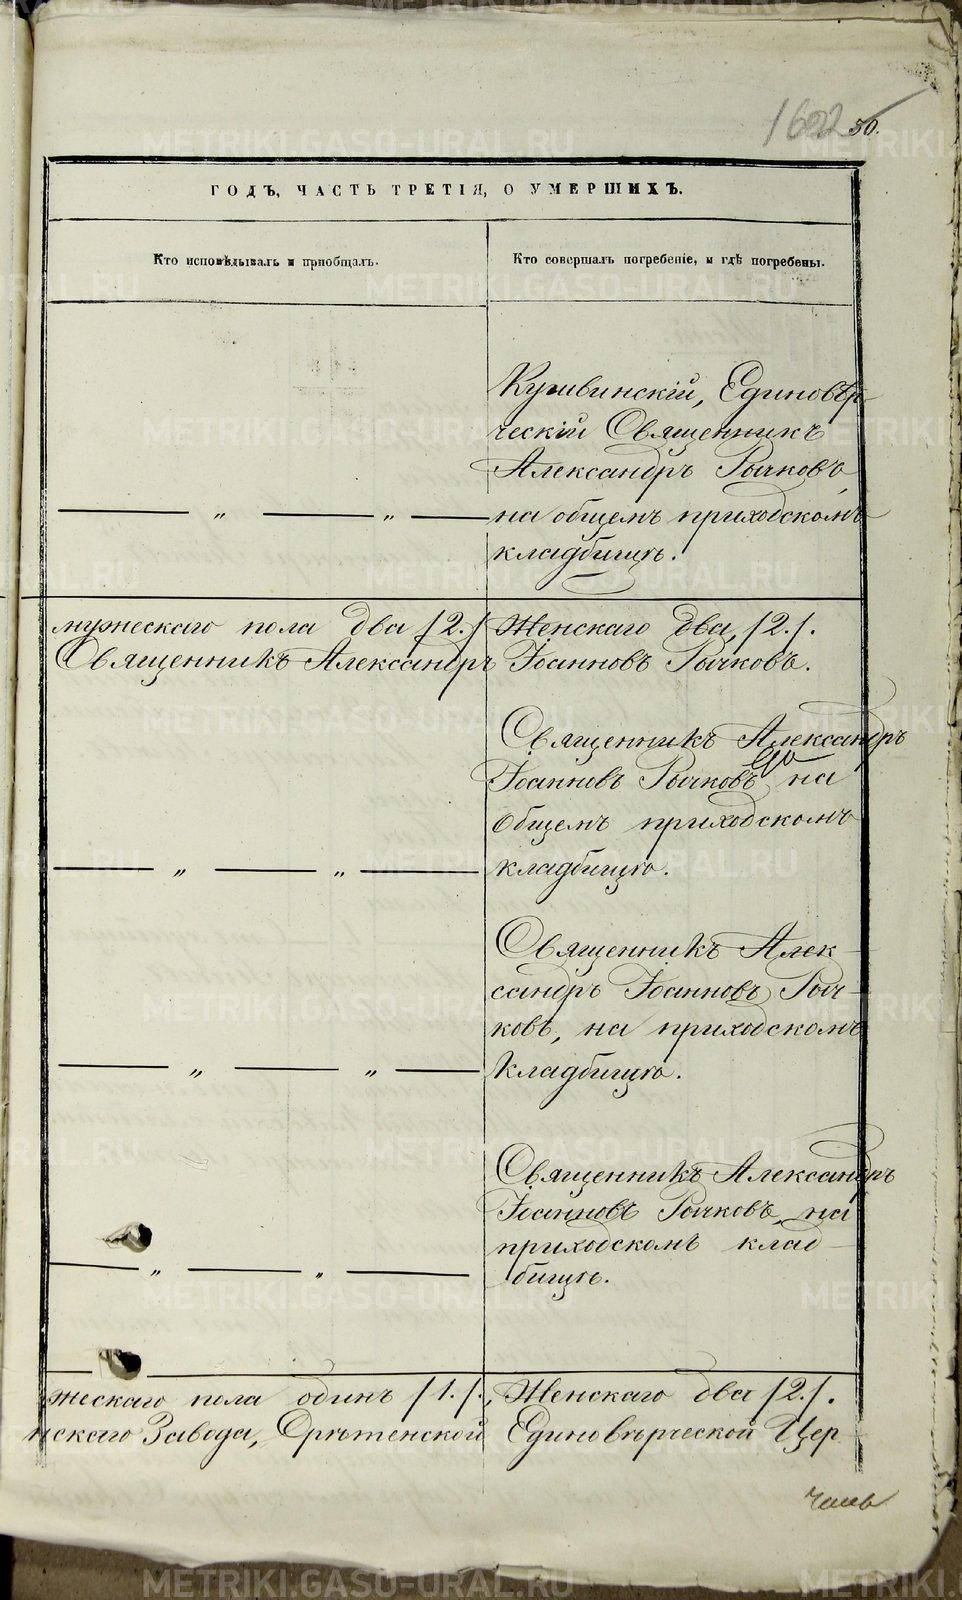 50.
ГОДЪ, ЧАСТЬ ТРЕТІЯ, О УМЕРШИХЪ.
Кто исповѣдывалъ и пріобщалъ.
Кто совершалъ погребеніе, и гдѣ погребены.
Кушвинскій, Единовѣр-
ческій Священникъ
Александръ Рычковъ,
на общемъ приходскомъ
кладбищѣ.
мужескаго пола два /2./ Женскаго два /2./.
Священникъ Александръ Іоанновъ Рычковъ.
Священникъ Александръ
Іоанновъ Рычковъ на
Общемъ приходскомъ
кладбищѣ.
Священникъ Алек-
сандръ Іоанновъ Рыч-
ковъ, на приходскомъ
кладбищѣ.
Священникъ Александръ
Іоанновъ Рычковъ, на
приходскомъ клад-
бищѣ.
жескаго пола одинъ /1./, Женскаго два /2./.
нскаго Завода, Срѣтенской Единовѣрческой Цер
METRIKI.GASO-URAL.RU